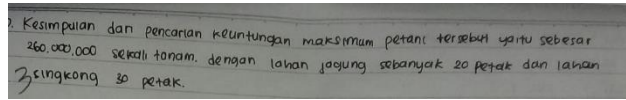 . Kesimpulan dari pencarian keuntungan maksimum petani tersebut yaitu sebesar
260.000.000 sekali tanam. dengan lahan jagung sebanyak 20 petak dan lahan
singkong 30 petak.
3